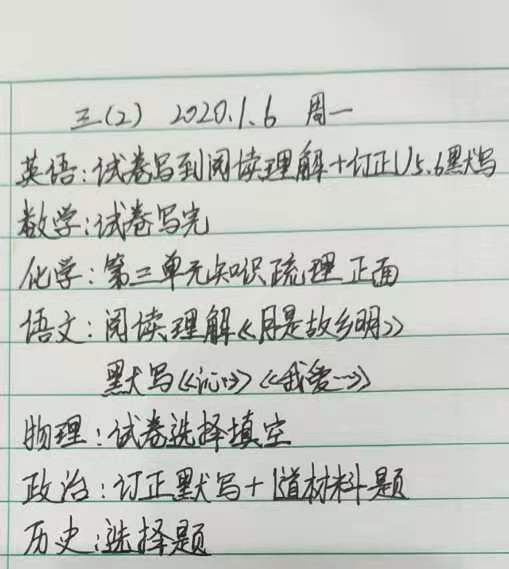 三(2) 2020.1.6 周一
英语:试卷写到阅读理解+订正U5.6默写
数学:试卷写完
化学:第三单元知识疏理正面
语文:阅读理解《月是故乡明》
默写《沁…》《我爱…》
物理:试卷选择填空
政治:订正默写+1道材料题
历史:选择题